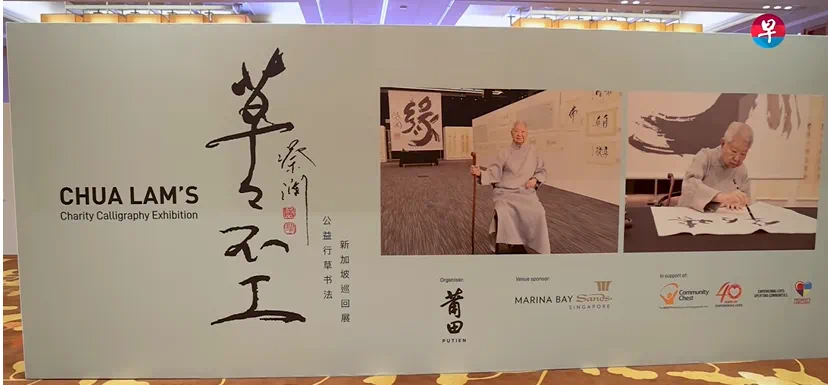 早
CHUA LAM'S
Charity Calligraphy Exhibition
草々不工
蔡瀾
公益行草书法
新加坡巡回展
緣
Organiser:
莆田
PUTIEN
Venue sponsor:
MARINA BAY Sands
SINGAPORE
In support of:
Community
Chest
40